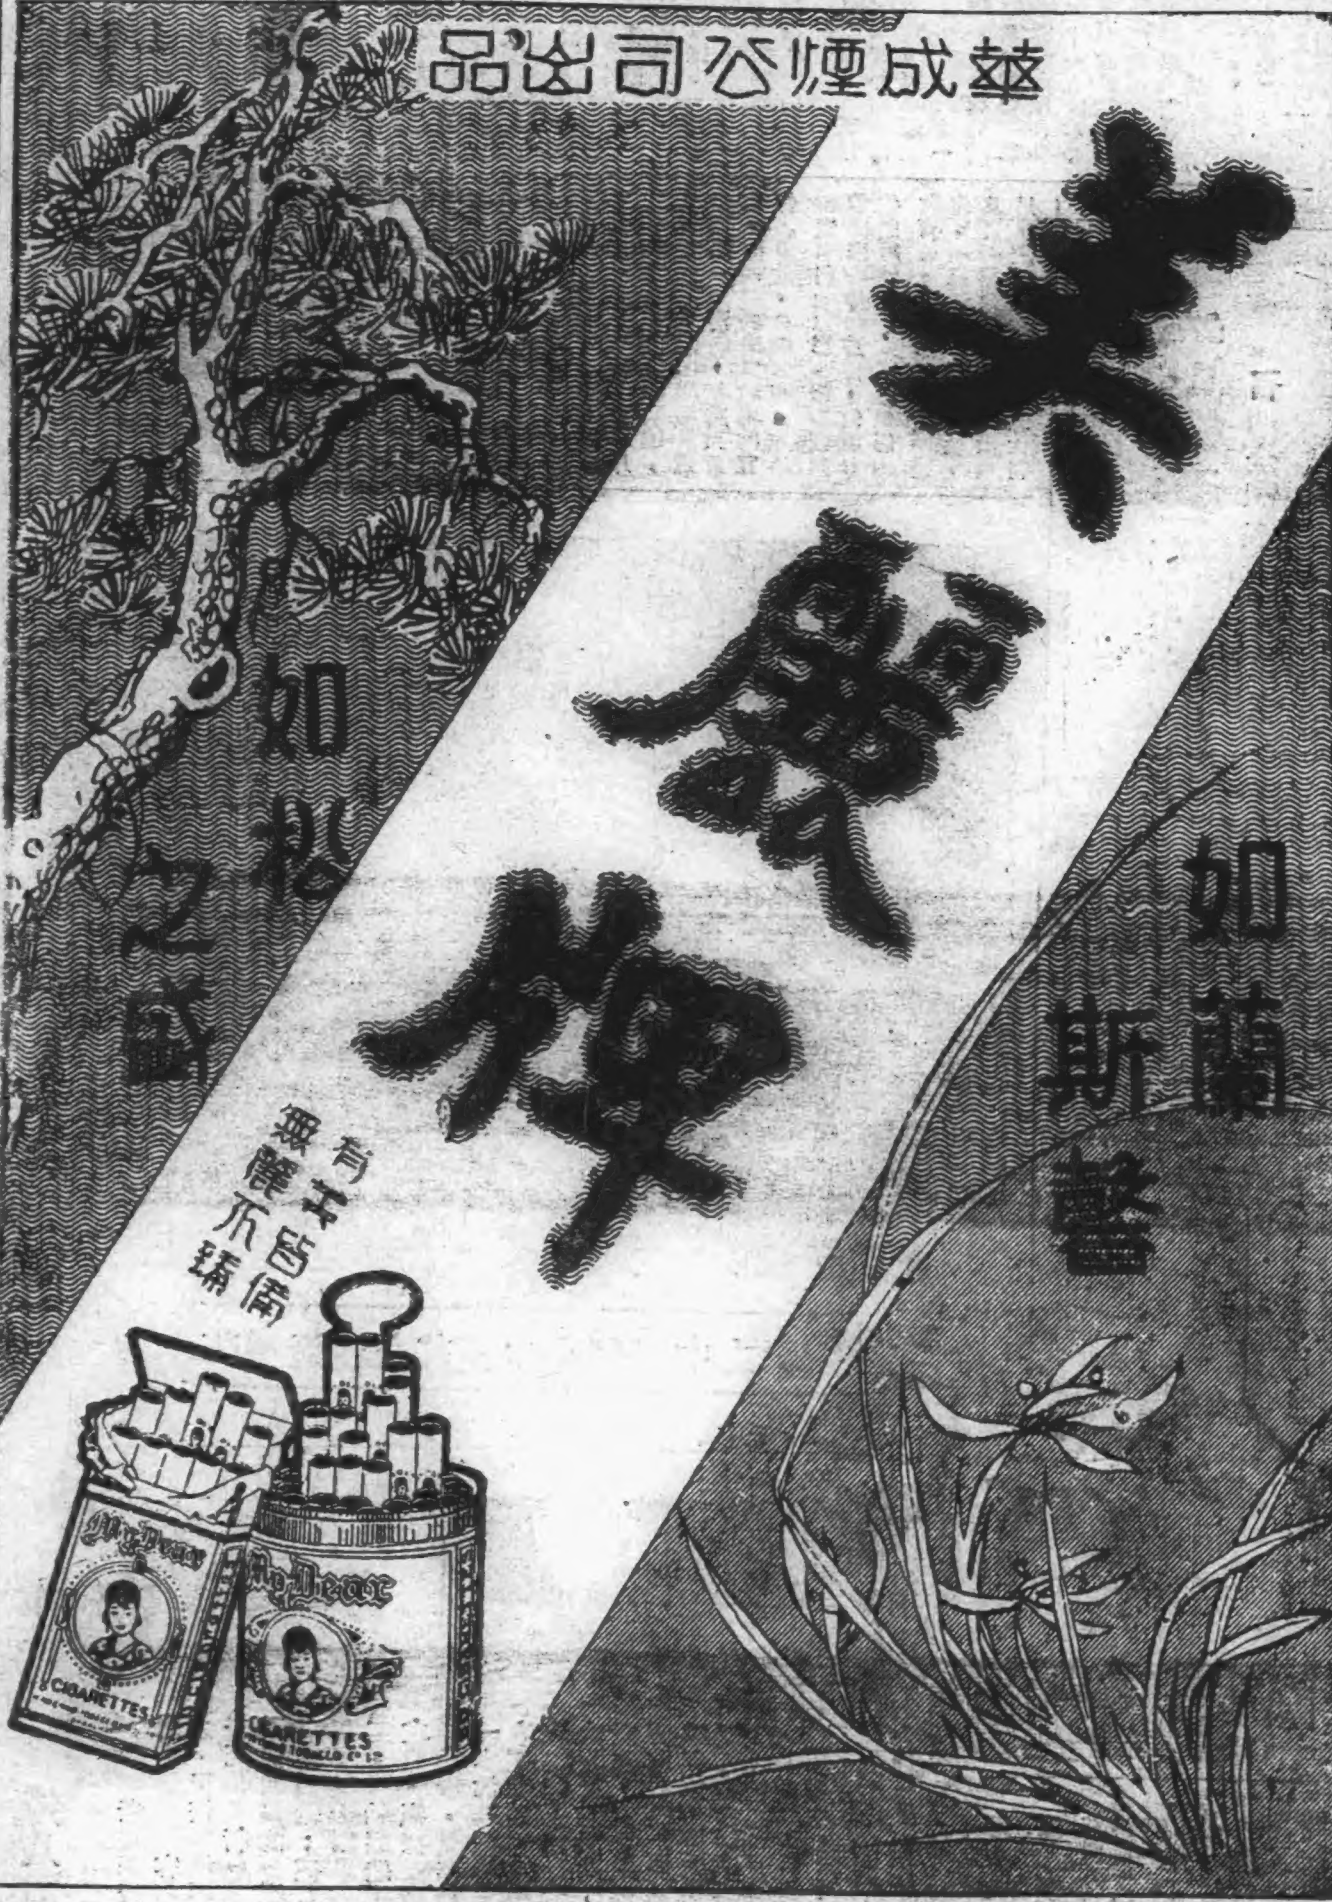 華成煙公司出品
美麗牌
如蘭
斯馨
如松
之盛
有美皆備
無麗不臻
My Dear
CIGARETTES
My Dear
CIGARETTES
TOBACCO CO LD